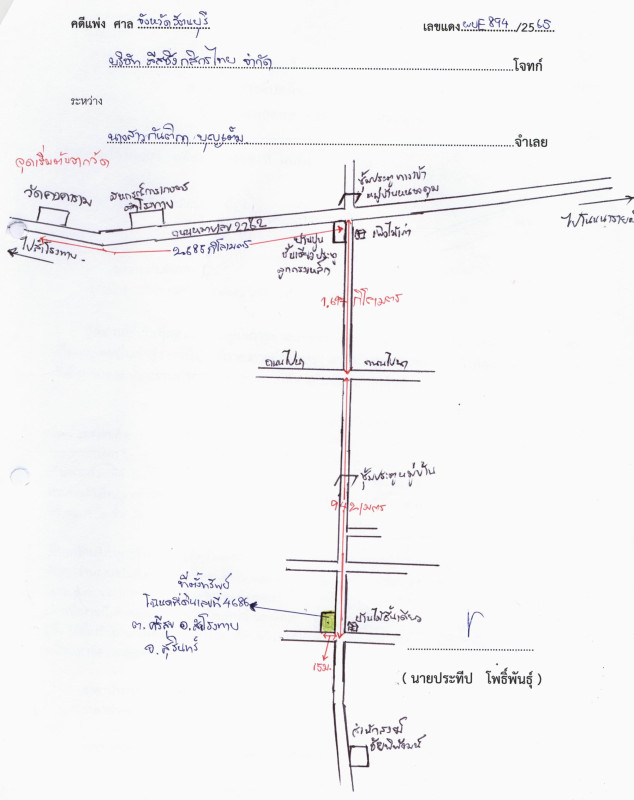 คดีแพ่ง ศาล จังหวัดรัตนบุรี
เลขแดง ผบE894 /2565
บริษัท ลีสซิ่งกสิกรไทย จำกัด โจทก์
ระหว่าง
นางสาวกันติกา บุญเต็ม จำเลย
จุดเริ่มต้นจากวัด
ซุ้มประตูทางเข้า
สหกรณ์การเกษตร
สำโรงทาบ
ถนนหมายเลข 2762
ไปสำโรงทาบ
2.685 กิโลเมตร
บ้านปูน
ชั้นเดียวประตู
ลูกกรงเหล็ก
เพิงไม้เก่า
กิโลเมตร
ถนนไปนา
ถนนไปนา
ซุ้มประตูหมู่บ้าน
เมตร
ที่ตั้งทรัพย์
โฉนดที่ดินเลขที่ 4686
ต. ศรีสุข อ. สำโรงทาบ
จ. สุรินทร์
บ้านไม้ชั้นเดียว
15 ม.
(นายประทีป โพธิ์พันธุ์)
สำนักสงฆ์